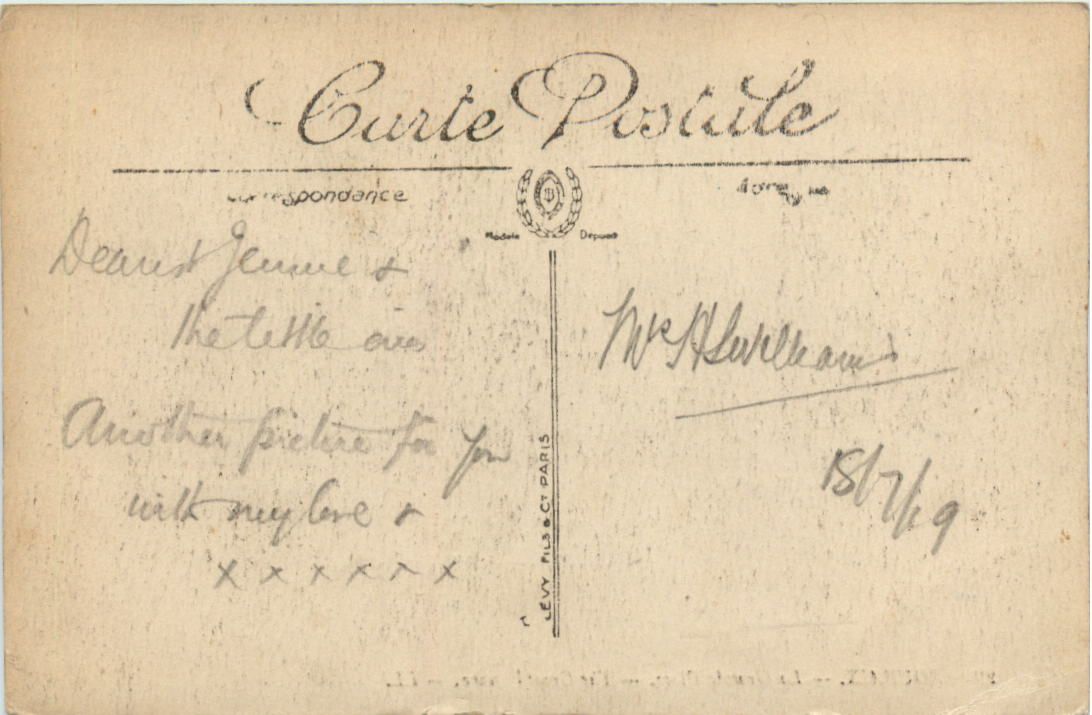 Carte Postale
Correspondance
Adresse
Modèle Déposé
Dearest Jennie &
the little ones
Another picture for you
with my love &
x x x x x x
LÉVY FILS & Cⁱᵉ PARIS
Williams
18/7/19